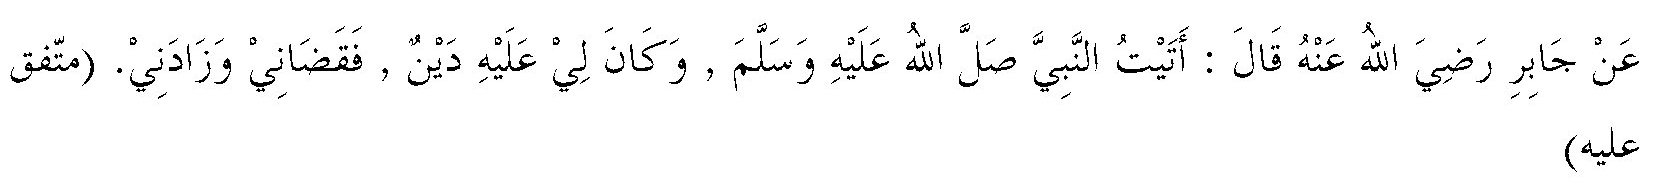 عَنْ جَابِرِ رَضِيَ اللهُ عَنْهُ قَالَ : أَتَيْتُ النَّبِيَّ صَلَّ اللهُ عَلَيْهِ وَسَلَّمَ , وَكَانَ لِيْ عَلَيْهِ دَيْنٌ , فَقَضَانِيْ وَزَادَنِيْ. (متّفق
عليه)